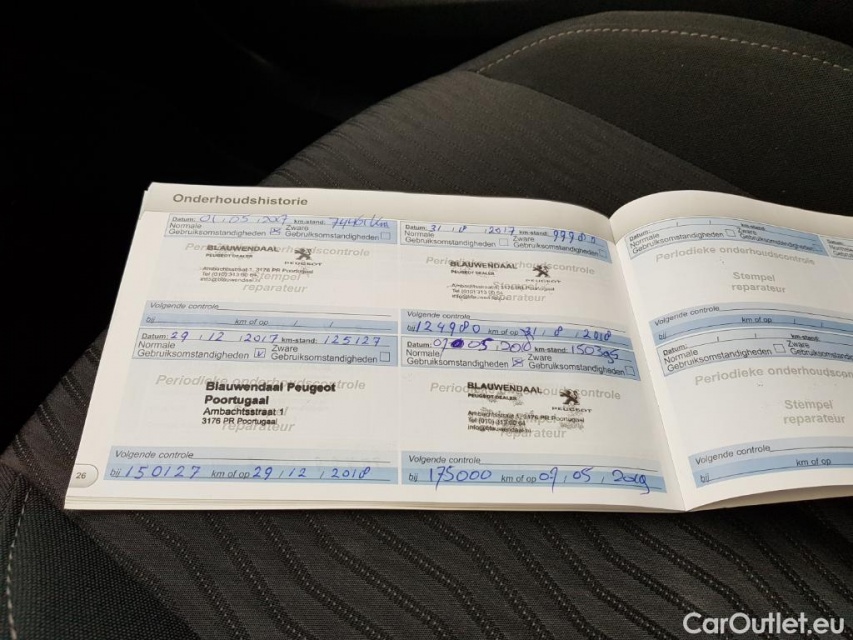 Onderhoudshistorie
Datum: 01, 05, 2017 km-stand:
Normale Zware
Gebruiksomstandigheden Gebruiksomstandigheden
Periodieke onderhoudscontrole
BLAUWENDAAL
PEUGEOT DEALER
PEUGEOT
Stempel
reparateur
Volgende controle
bij km of op / /
Datum: 31, 8, 2017 km-stand: 99980
Normale Zware
Gebruiksomstandigheden Gebruiksomstandigheden
Periodieke onderhoudscontrole
BLAUWENDAAL
PEUGEOT DEALER
PEUGEOT
Stempel
reparateur
Volgende controle
bij 124980 km of op 31, 8, 2018
Datum: 29, 12, 2017 km-stand: 125127
Normale Zware
Gebruiksomstandigheden Gebruiksomstandigheden
Periodieke onderhoudscontrole
Blauwendaal Peugeot
Poortugaal
Ambachtsstraat 1
3176 PR Poortugaal
reparateur
Volgende controle
bij 150127 km of op 29, 12, 2018
Datum: 05, km-stand:
Normale Zware
Gebruiksomstandigheden Gebruiksomstandigheden
Periodieke onderhoudscontrole
BLAUWENDAAL
PEUGEOT DEALER
PEUGEOT
reparateur
Volgende controle
bij 175000 km of op 05, 2019
26
Datum: / / km-stand:
Normale Zware
Gebruiksomstandigheden Gebruiksomstandigheden
Periodieke onderhoudscontrole
Stempel
reparateur
Volgende controle
bij km of op
Datum: / / km-stand:
Normale Zware
Gebruiksomstandigheden Gebruiksomstandigheden
Periodieke onderhoudsco
Stempel
reparateur
Volgende controle
bij km of op
CarOutlet.eu